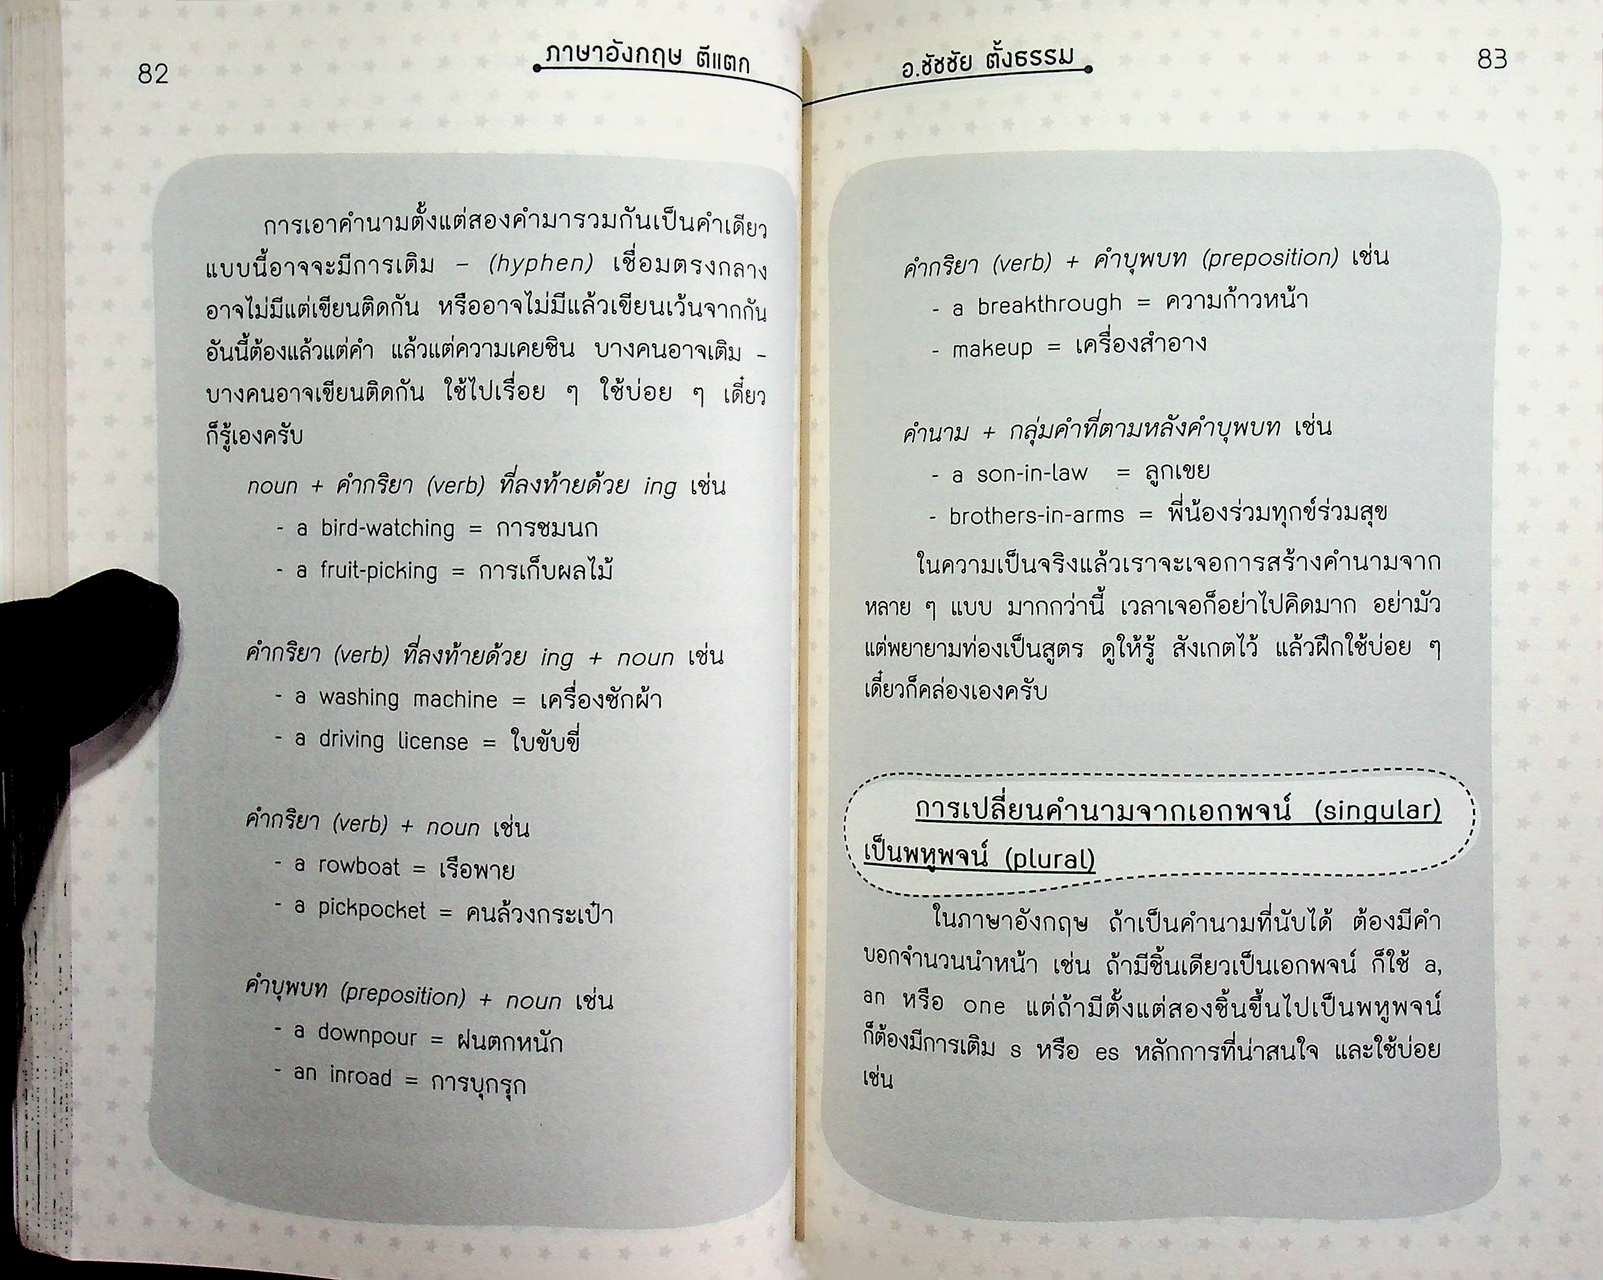 82
ภาษาอังกฤษ ตีแตก
การเอาคำนามตั้งแต่สองคำมารวมกันเป็นคำเดียว
แบบนี้อาจจะมีการเติม – (hyphen) เชื่อมตรงกลาง
อาจไม่มีแต่เขียนติดกัน หรืออาจไม่มีแล้วเขียนเว้นจากกัน
อันนี้ต้องแล้วแต่คำ แล้วแต่ความเคยชิน บางคนอาจเติม –
บางคนอาจเขียนติดกัน ใช้ไปเรื่อย ๆ ใช้บ่อย ๆ เดี๋ยว
ก็รู้เองครับ
noun + คำกริยา (verb) ที่ลงท้ายด้วย ing เช่น
- a bird-watching = การชมนก
- a fruit-picking = การเก็บผลไม้
คำกริยา (verb) ที่ลงท้ายด้วย ing + noun เช่น
- a washing machine = เครื่องซักผ้า
- a driving license = ใบขับขี่
คำกริยา (verb) + noun เช่น
- a rowboat = เรือพาย
- a pickpocket = คนล้วงกระเป๋า
คำบุพบท (preposition) + noun เช่น
- a downpour = ฝนตกหนัก
- an inroad = การบุกรุก
อ.ชัชชัย ตั้งธรรม
83
คำกริยา (verb) + คำบุพบท (preposition) เช่น
- a breakthrough = ความก้าวหน้า
- makeup = เครื่องสำอาง
คำนาม + กลุ่มคำที่ตามหลังคำบุพบท เช่น
- a son-in-law = ลูกเขย
- brothers-in-arms = พี่น้องร่วมทุกข์ร่วมสุข
ในความเป็นจริงแล้วเราจะเจอการสร้างคำนามจาก
หลาย ๆ แบบ มากกว่านี้ เวลาเจอก็อย่าไปคิดมาก อย่ามัว
แต่พยายามท่องเป็นสูตร ดูให้รู้ สังเกตไว้ แล้วฝึกใช้บ่อย ๆ
เดี๋ยวก็คล่องเองครับ
การเปลี่ยนคำนามจากเอกพจน์ (singular)
เป็นพหูพจน์ (plural)
ในภาษาอังกฤษ ถ้าเป็นคำนามที่นับได้ ต้องมีคำ
บอกจำนวนนำหน้า เช่น ถ้ามีชิ้นเดียวเป็นเอกพจน์ ก็ใช้ a,
an หรือ one แต่ถ้ามีตั้งแต่สองชิ้นขึ้นไปเป็นพหูพจน์
ก็ต้องมีการเติม s หรือ es หลักการที่น่าสนใจ และใช้บ่อย
เช่น